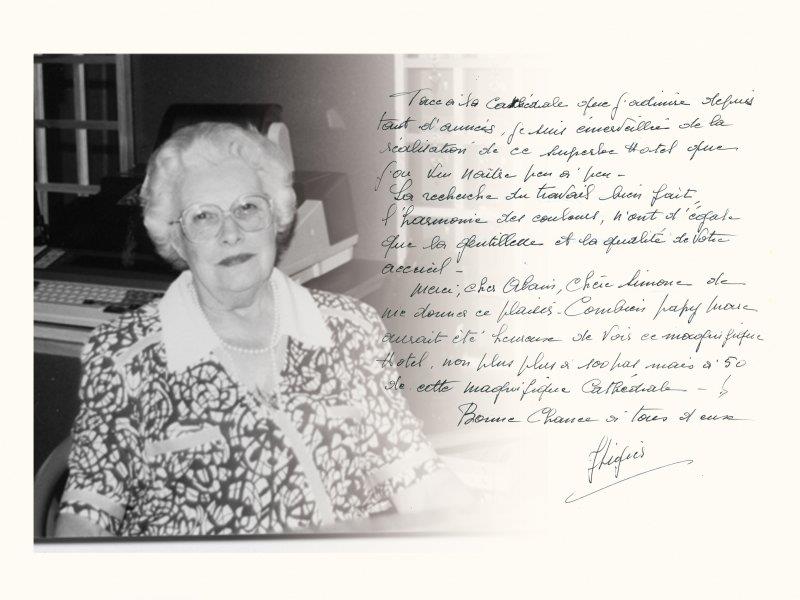 Face à la Cathédrale que j'admire depuis
tant d'années, je suis émerveillée de la
réalisation de ce superbe Hotel que
j'ai vu naître peu à peu -
La recherche du travail bien fait,
l'harmonie des couleurs, n'ont d'égale
que la gentillesse et la qualité de votre
accueil -
Merci, cher Alain, chère Simone de
me donner ce plaisir. Combien papy
aurait été heureux de voir ce magnifique
Hotel, non plus à 100 pas mais à 50
de cette magnifique Cathédrale - !
Bonne Chance à tous deux